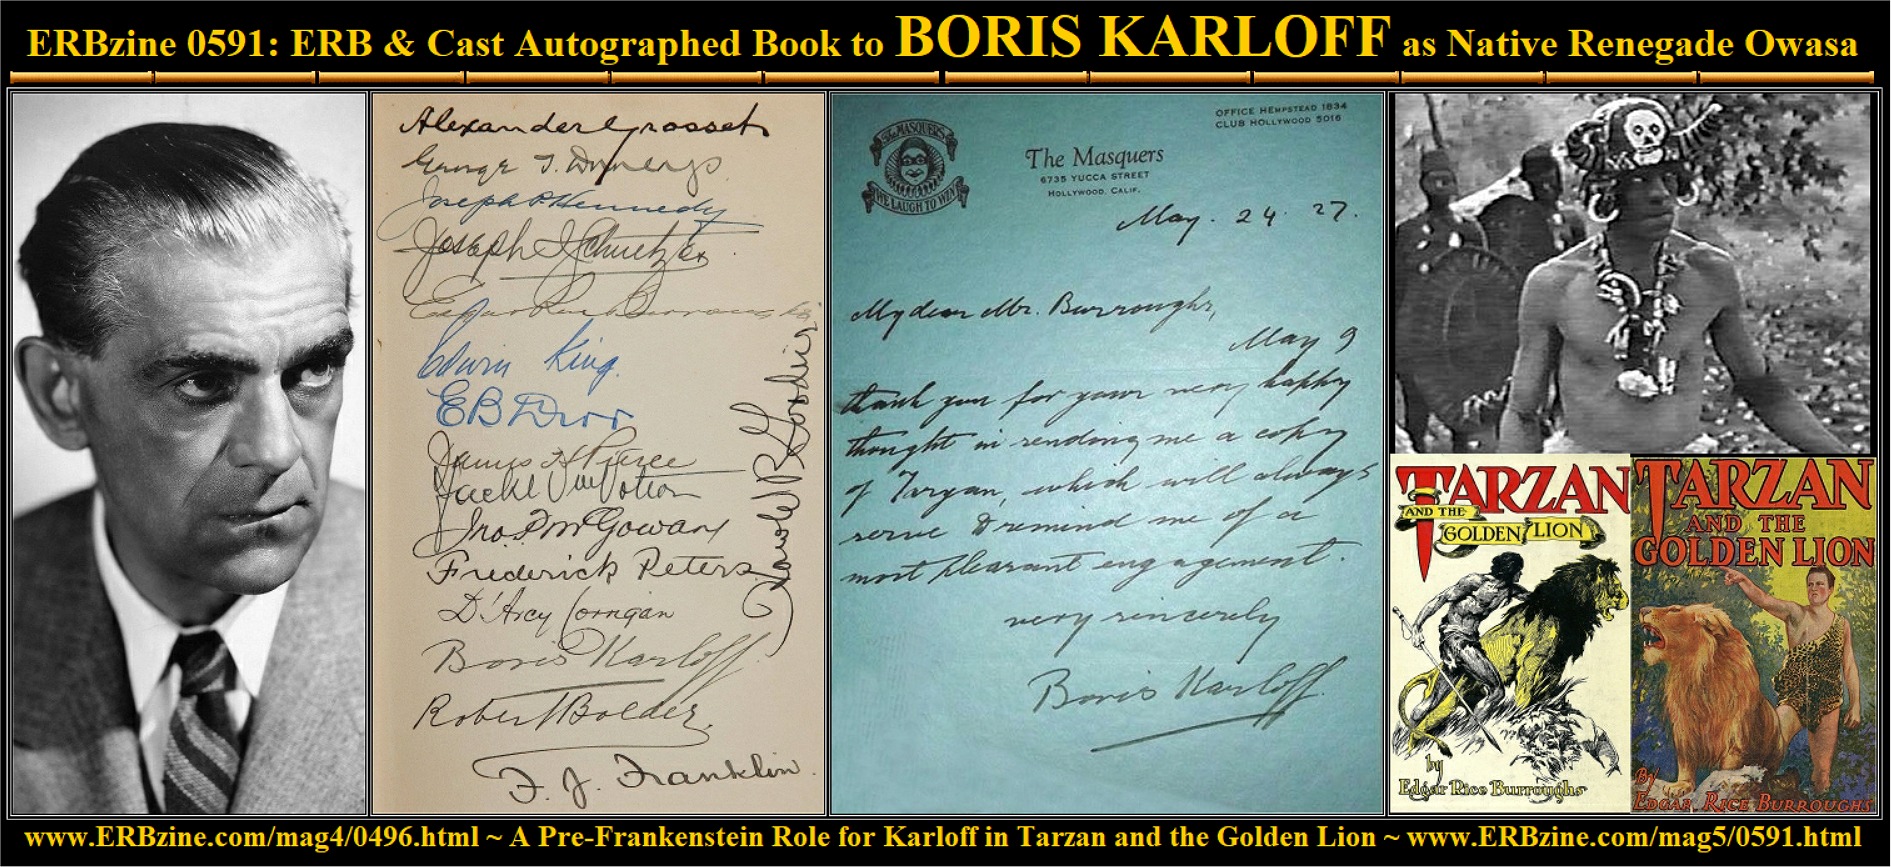 ERBzine 0591: ERB & Cast Autographed Book to BORIS KARLOFF as Native Renegade Owasa
Alexander Grosset
George T.
Joseph P Kennedy
Joseph I Schnitzer
Edgar Rice Burroughs
Edwin King.
EB Derr
James H Pierce
Jno. P. McGowan
Frederick Peters
D'Arcy Corrigan
Boris Karloff
Robert Bolder.
F. J. Franklin.
Harold B Goodwin
THE MASQUERS
WE LAUGH TO WIN
OFFICE HEMPSTEAD 1834
CLUB HOLLYWOOD 5016
The Masquers
6735 YUCCA STREET
HOLLYWOOD, CALIF.
May. 24. 27.
My dear Mr. Burroughs,
May I
thank you for your very happy
thought in sending me a copy
of Tarzan, which will always
serve to remind me of a
most pleasant engagement.
very sincerely
Boris Karloff
TARZAN
AND THE
GOLDEN LION
by
Edgar Rice Burroughs
TARZAN
AND THE
GOLDEN LION
By
EDGAR RICE BURROUGHS
www.ERBzine.com/mag4/0496.html ~ A Pre-Frankenstein Role for Karloff in Tarzan and the Golden Lion ~ www.ERBzine.com/mag5/0591.html